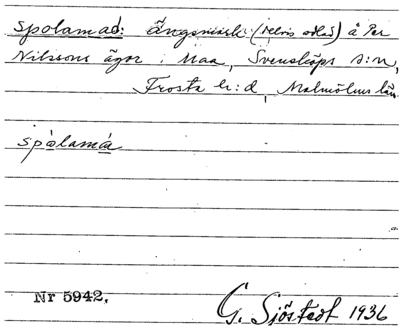 Spolamad: Ängsmark (delvis odlad) å Per
Nilssons ägor i Maa, Svensköps s:n,
Frosta h:d, Malmöhus län.
spòlamàa
Nr 5942.
G. Sjöstedt 1936